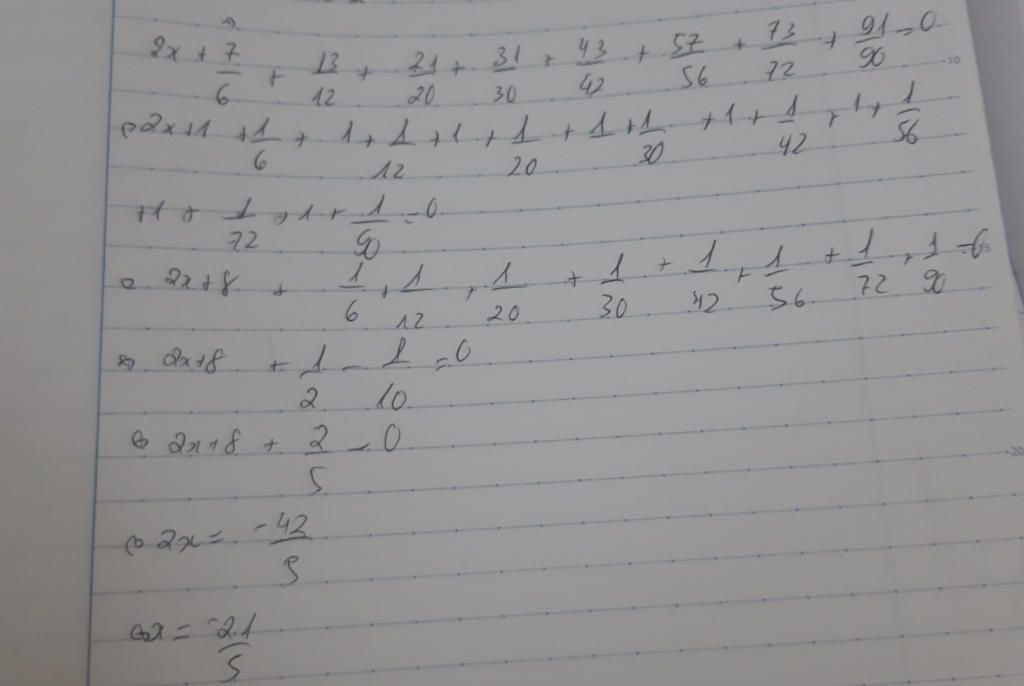 2x + 7/6 + 13/12 + 21/20 + 31/30 + 43/42 + 57/56 + 73/72 + 91/90 = 0
⇔ 2x + 1 + 1/6 + 1 + 1/12 + 1 + 1/20 + 1 + 1/30 + 1 + 1/42 + 1 + 1/56
+ 1 + 1/72 + 1 + 1/90 = 0
⇔ 2x + 8 + 1/6 + 1/12 + 1/20 + 1/30 + 1/42 + 1/56 + 1/72 + 1/90 = 0
⇔ 2x + 8 + 1/2 - 1/10 = 0
⇔ 2x + 8 + 2/5 = 0
⇔ 2x = -42/5
⇔ x = -21/5
10
20